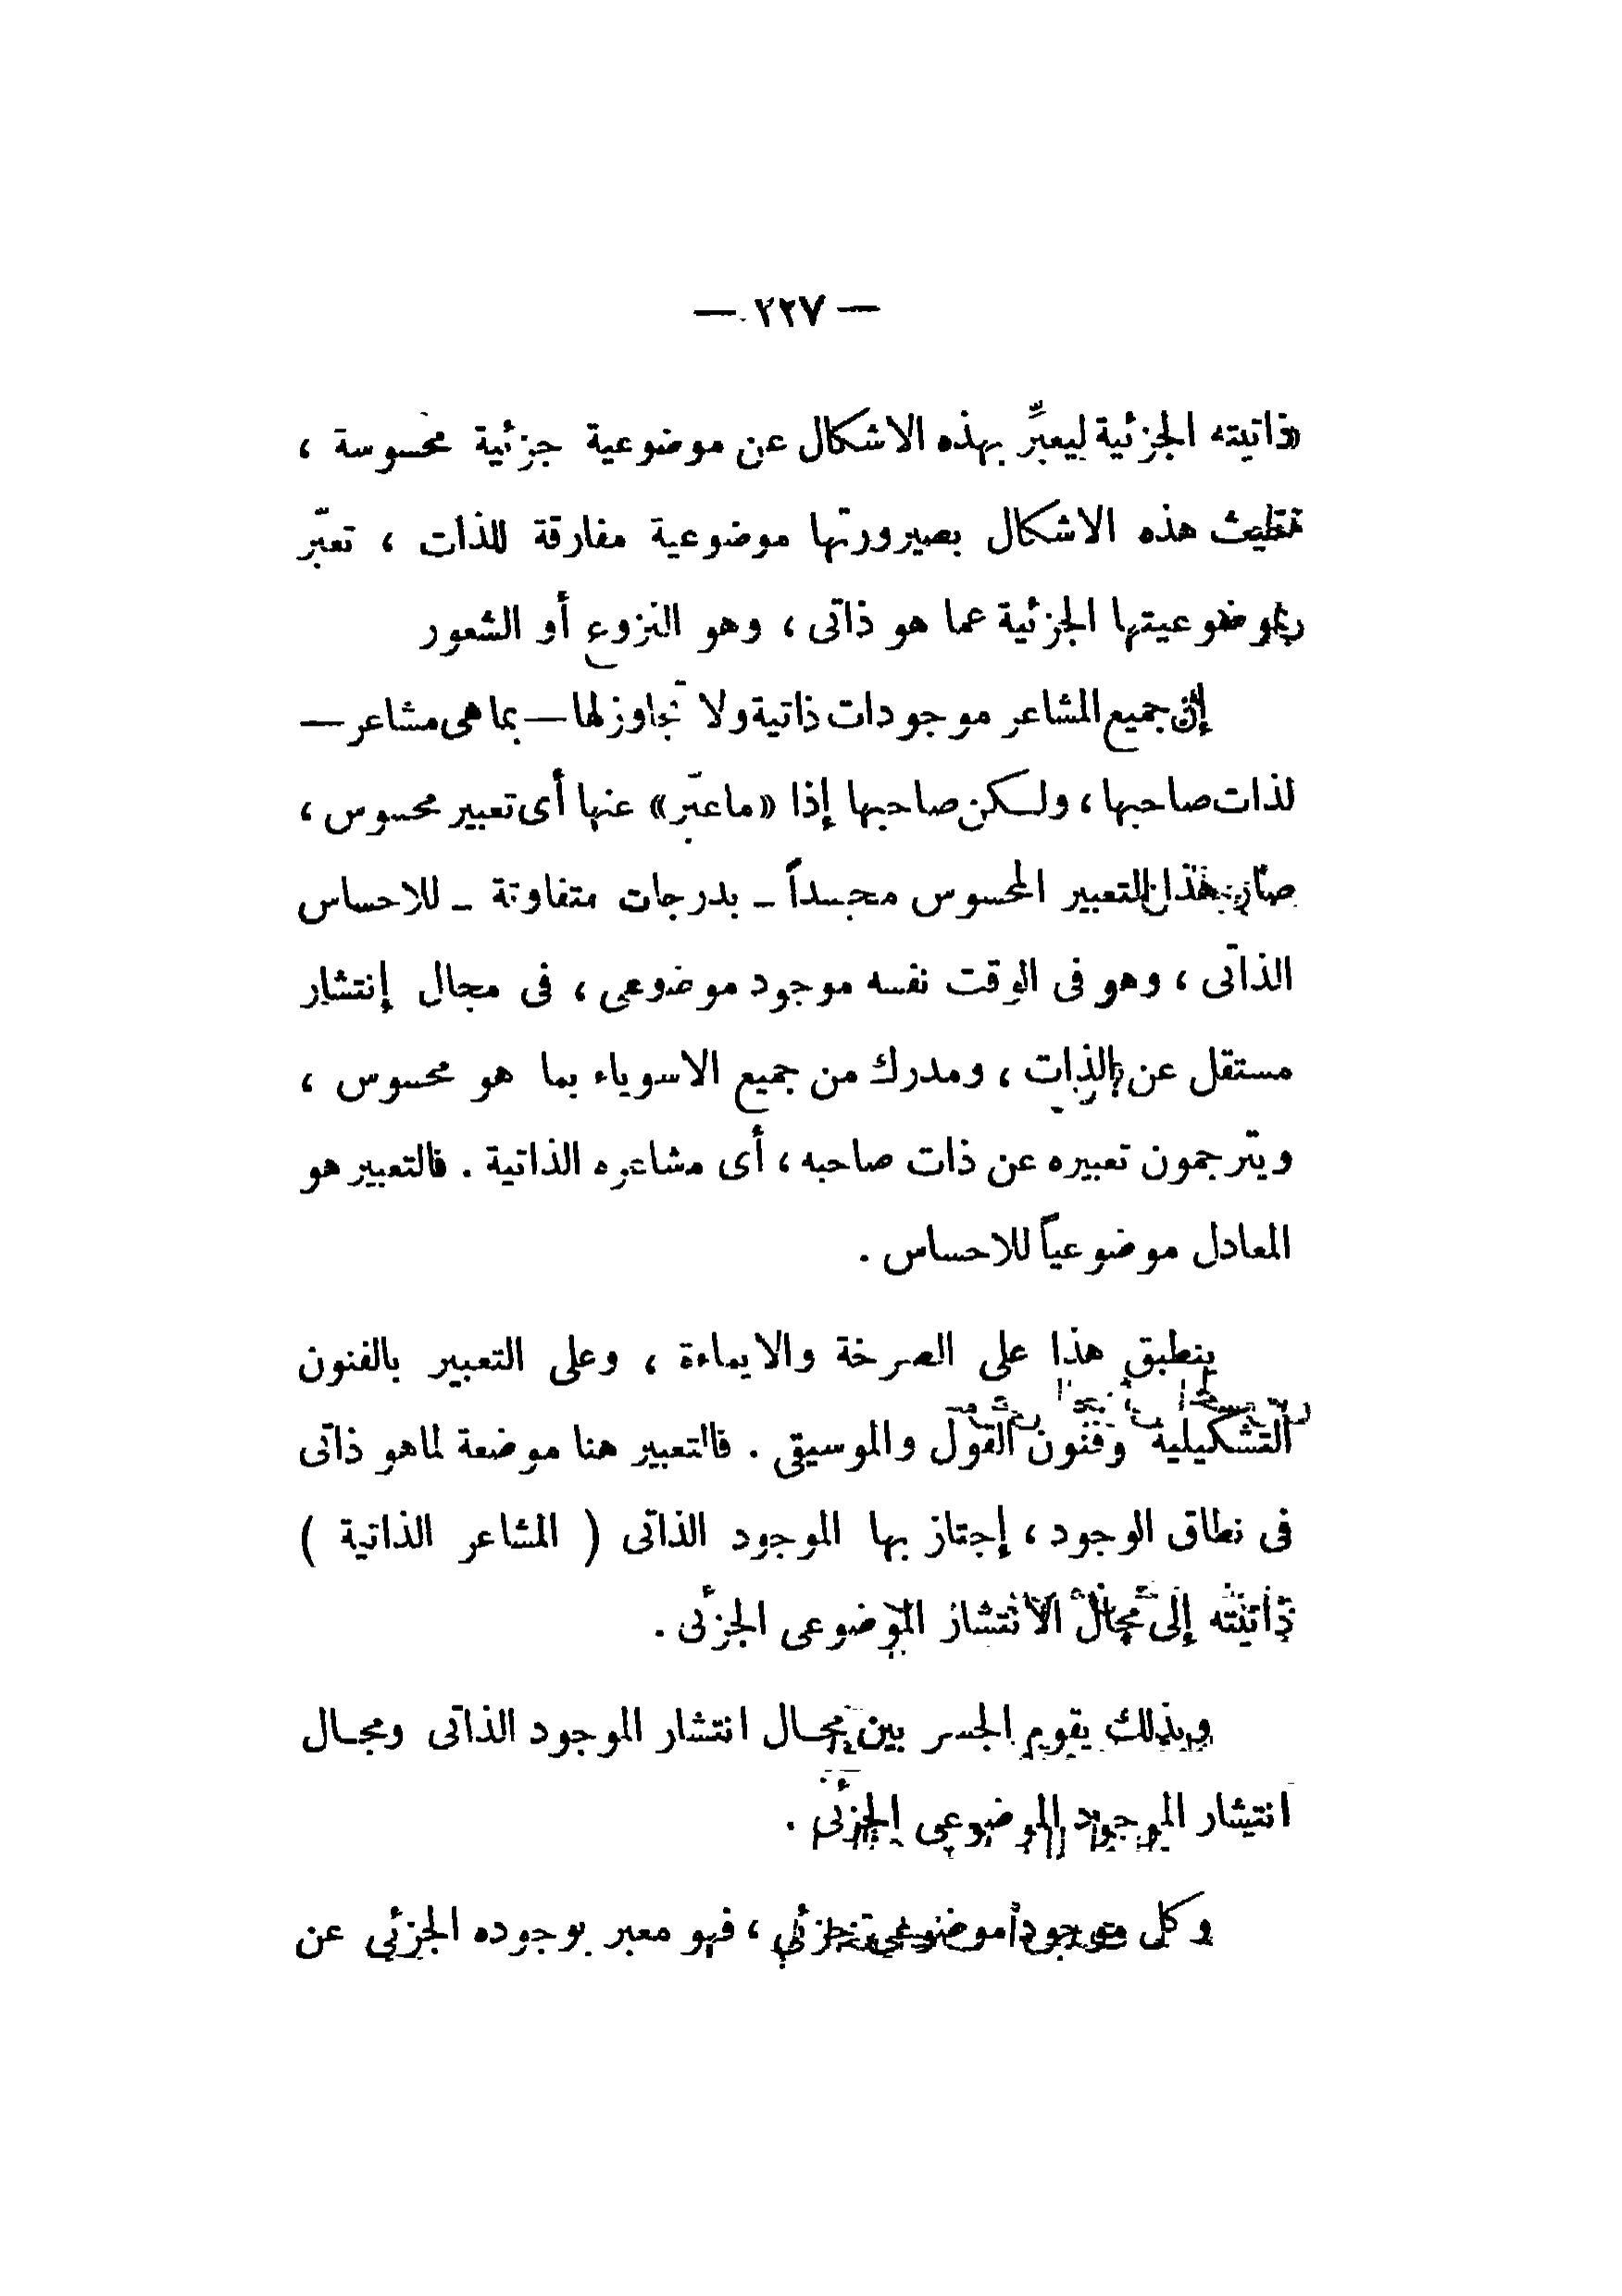 — ٢٢٧ —
ذاتيته الجزئية ليعبِّر بهذه الاشكال عن موضوعية جزئية محسوسة ،
هذه الاشكال بصيرورتها موضوعية مفارقة للذات ، تعبّر
بموضوعيتها الجزئية عما هو ذاتى ، وهو النزوع أو الشعور
إن جميع المشاعر موجودات ذاتية ولا تجاوز لها — بما هى مشاعر —
لذات صاحبها ، ولكن صاحبها إذا «ما عبّر» عنها أى تعبير محسوس ،
صار هذا التعبير المحسوس مجسداً - بدرجات متفاوتة - للاحساس
الذاتى ، وهو فى الوقت نفسه موجود موضوعى ، فى مجال إنتشار
مستقل عن الذات ، ومدرك من جميع الاسوياء بما هو محسوس ،
ويترجمون تعبيره عن ذات صاحبه ، أى مشاعره الذاتية . فالتعبير هو
المعادل موضوعياً للاحساس .
ينطبق هذا على الصرخة والايماءة ، وعلى التعبير بالفنون
التشكيلية وفنون القول والموسيقى . فالتعبير هنا موضعة لماهو ذاتى
فى نطاق الوجود ، إجتاز بها الموجود الذاتى ( المشاعر الذاتية )
ذاتيته إلى مجال الانتشار الموضوعى الجزئى .
وبذلك يقوم الجسر بين مجال انتشار الموجود الذاتى ومجال
انتشار الموجود الموضوعى الجزئى .
وكل موجود موضوعى جزئى ، فهو معبر بوجوده الجزئى عن